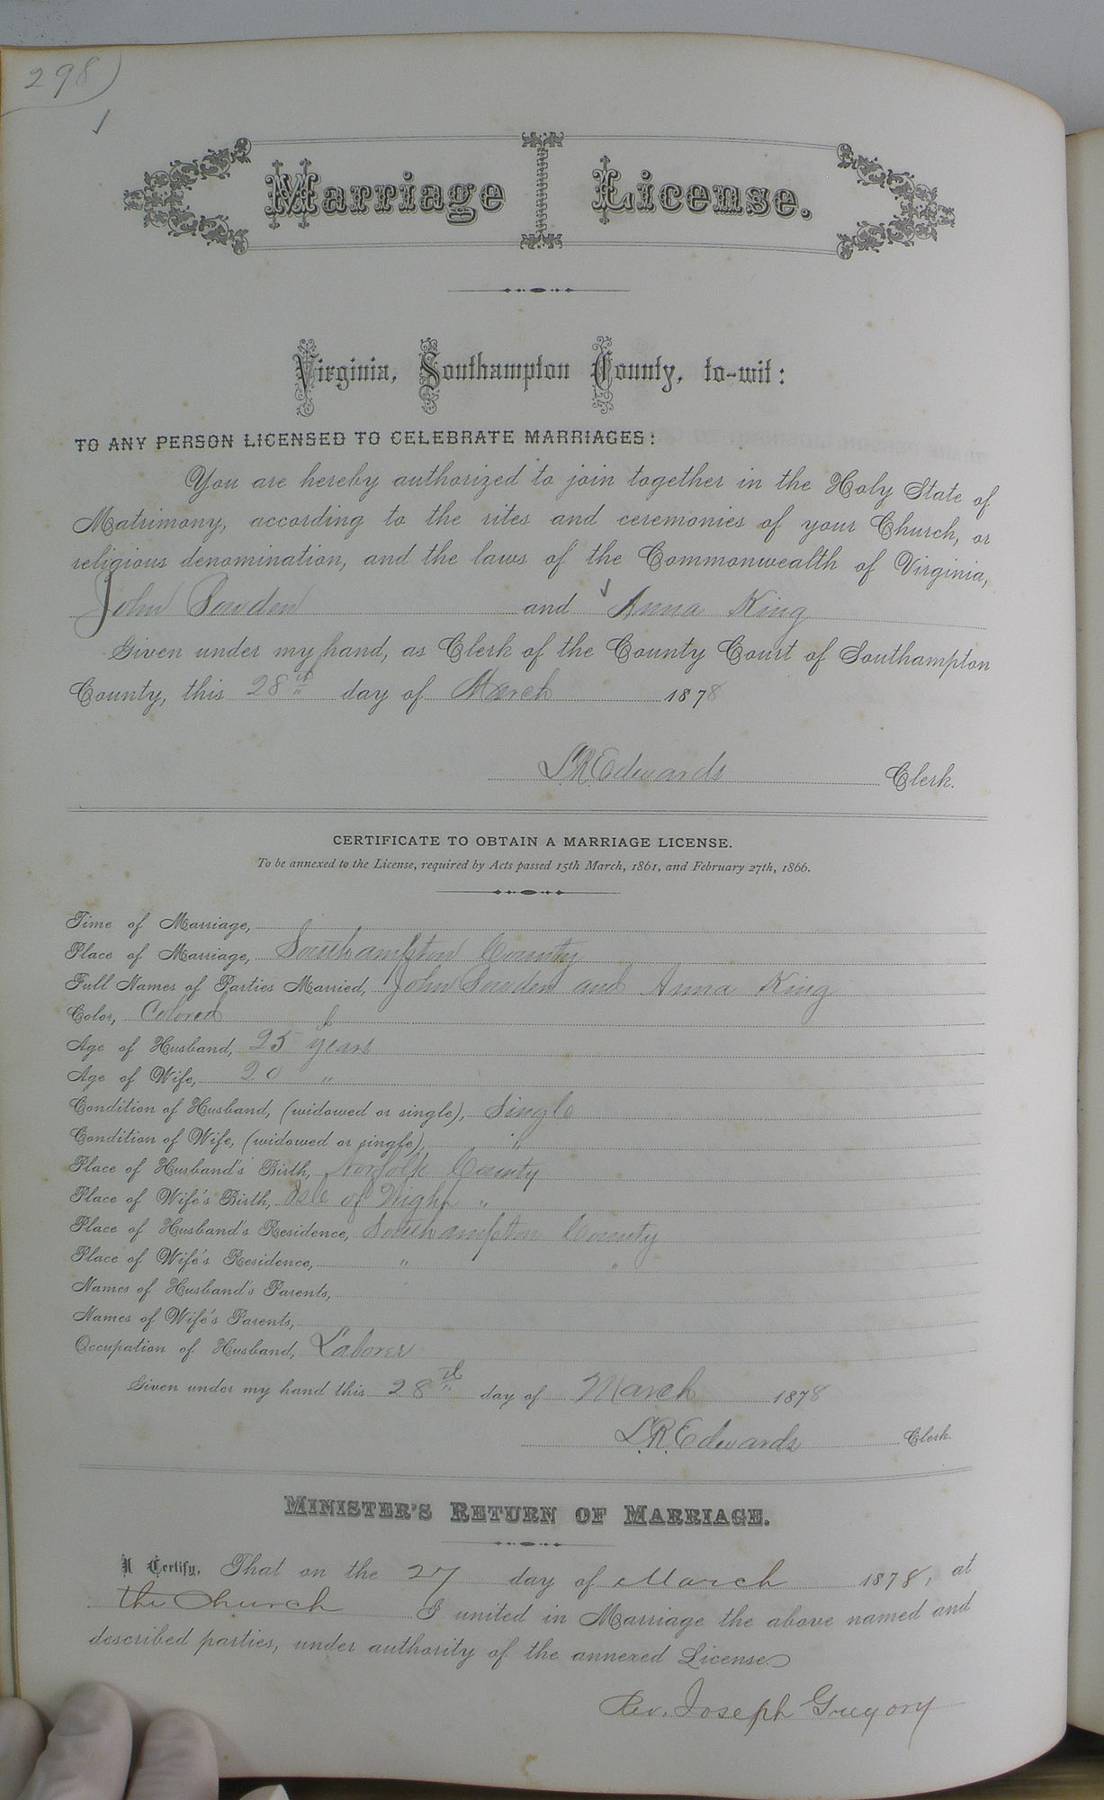 298
Marriage License.
Virginia, Southampton County, to-wit:
TO ANY PERSON LICENSED TO CELEBRATE MARRIAGES:
You are hereby authorized to join together in the Holy State of
Matrimony, according to the rites and ceremonies of your Church, or
religious denomination, and the laws of the Commonwealth of Virginia,
John Bowden and Anna King
Given under my hand, as Clerk of the County Court of Southampton
County, this 28th day of March 1878
L.R. Edwards Clerk.
CERTIFICATE TO OBTAIN A MARRIAGE LICENSE.
To be annexed to the License, required by Acts passed 15th March, 1861, and February 27th, 1866.
Time of Marriage,
Place of Marriage, Southampton County
Full Names of Parties Married, John Bowden and Anna King
Color, Colored
Age of Husband, 25 years
Age of Wife, 20 "
Condition of Husband, (widowed or single), Single
Condition of Wife, (widowed or single), "
Place of Husband's Birth, Norfolk County
Place of Wife's Birth, Isle of Wight "
Place of Husband's Residence, Southampton County
Place of Wife's Residence, " "
Names of Husband's Parents,
Names of Wife's Parents,
Occupation of Husband, Laborer
Given under my hand this 28th day of March 1878
L.R. Edwards Clerk.
MINISTER'S RETURN OF MARRIAGE.
I Certify, That on the 27 day of March 1878, at
the Church I united in Marriage the above named and
described parties, under authority of the annexed License
Rev. Joseph Gregory